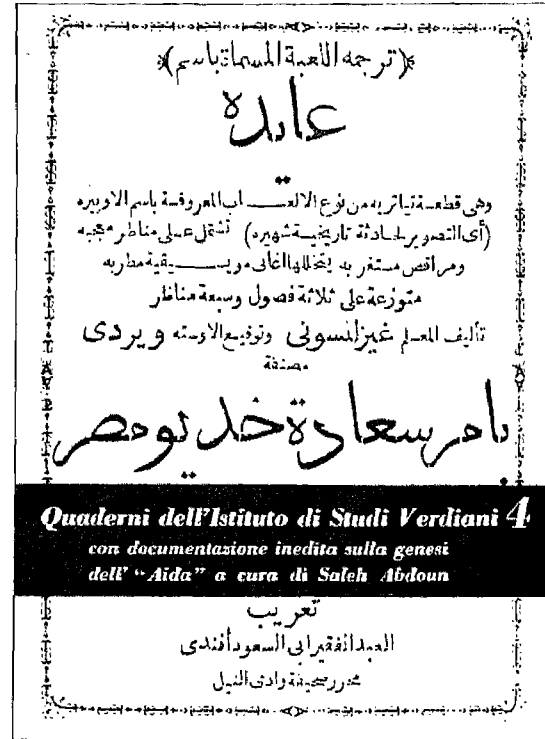 ﴿ترجمة اللعبة المسماة باسم﴾
عايدة
وهى قطعة تياتريه من نوع الالعاب المعروفة باسم الاوبيره
(أى التصوير لحادثة تاريخية شهيره) تشتمل على مناظر معجبه
ومراقص مستغربه يتخللها اغانى موسيقية مطربه
متوزعة على ثلاثة فصول وسبعة مناظر
تأليف المعلم غيزلنسونى وتوقيع الاوسته ويردى
مصنفة
بامر سعادة خديو مصر
Quaderni dell'Istituto di Studi Verdiani 4
con documentazione inedita sulla genesi
dell' “Aida” a cura di Saleh Abdoun
تعريب
العبد الفقير ابى السعود أفندى
محرر صحيفة وادى النيل